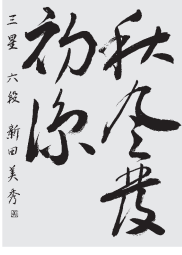 秋風發
初涼
三星 六段 新田美秀